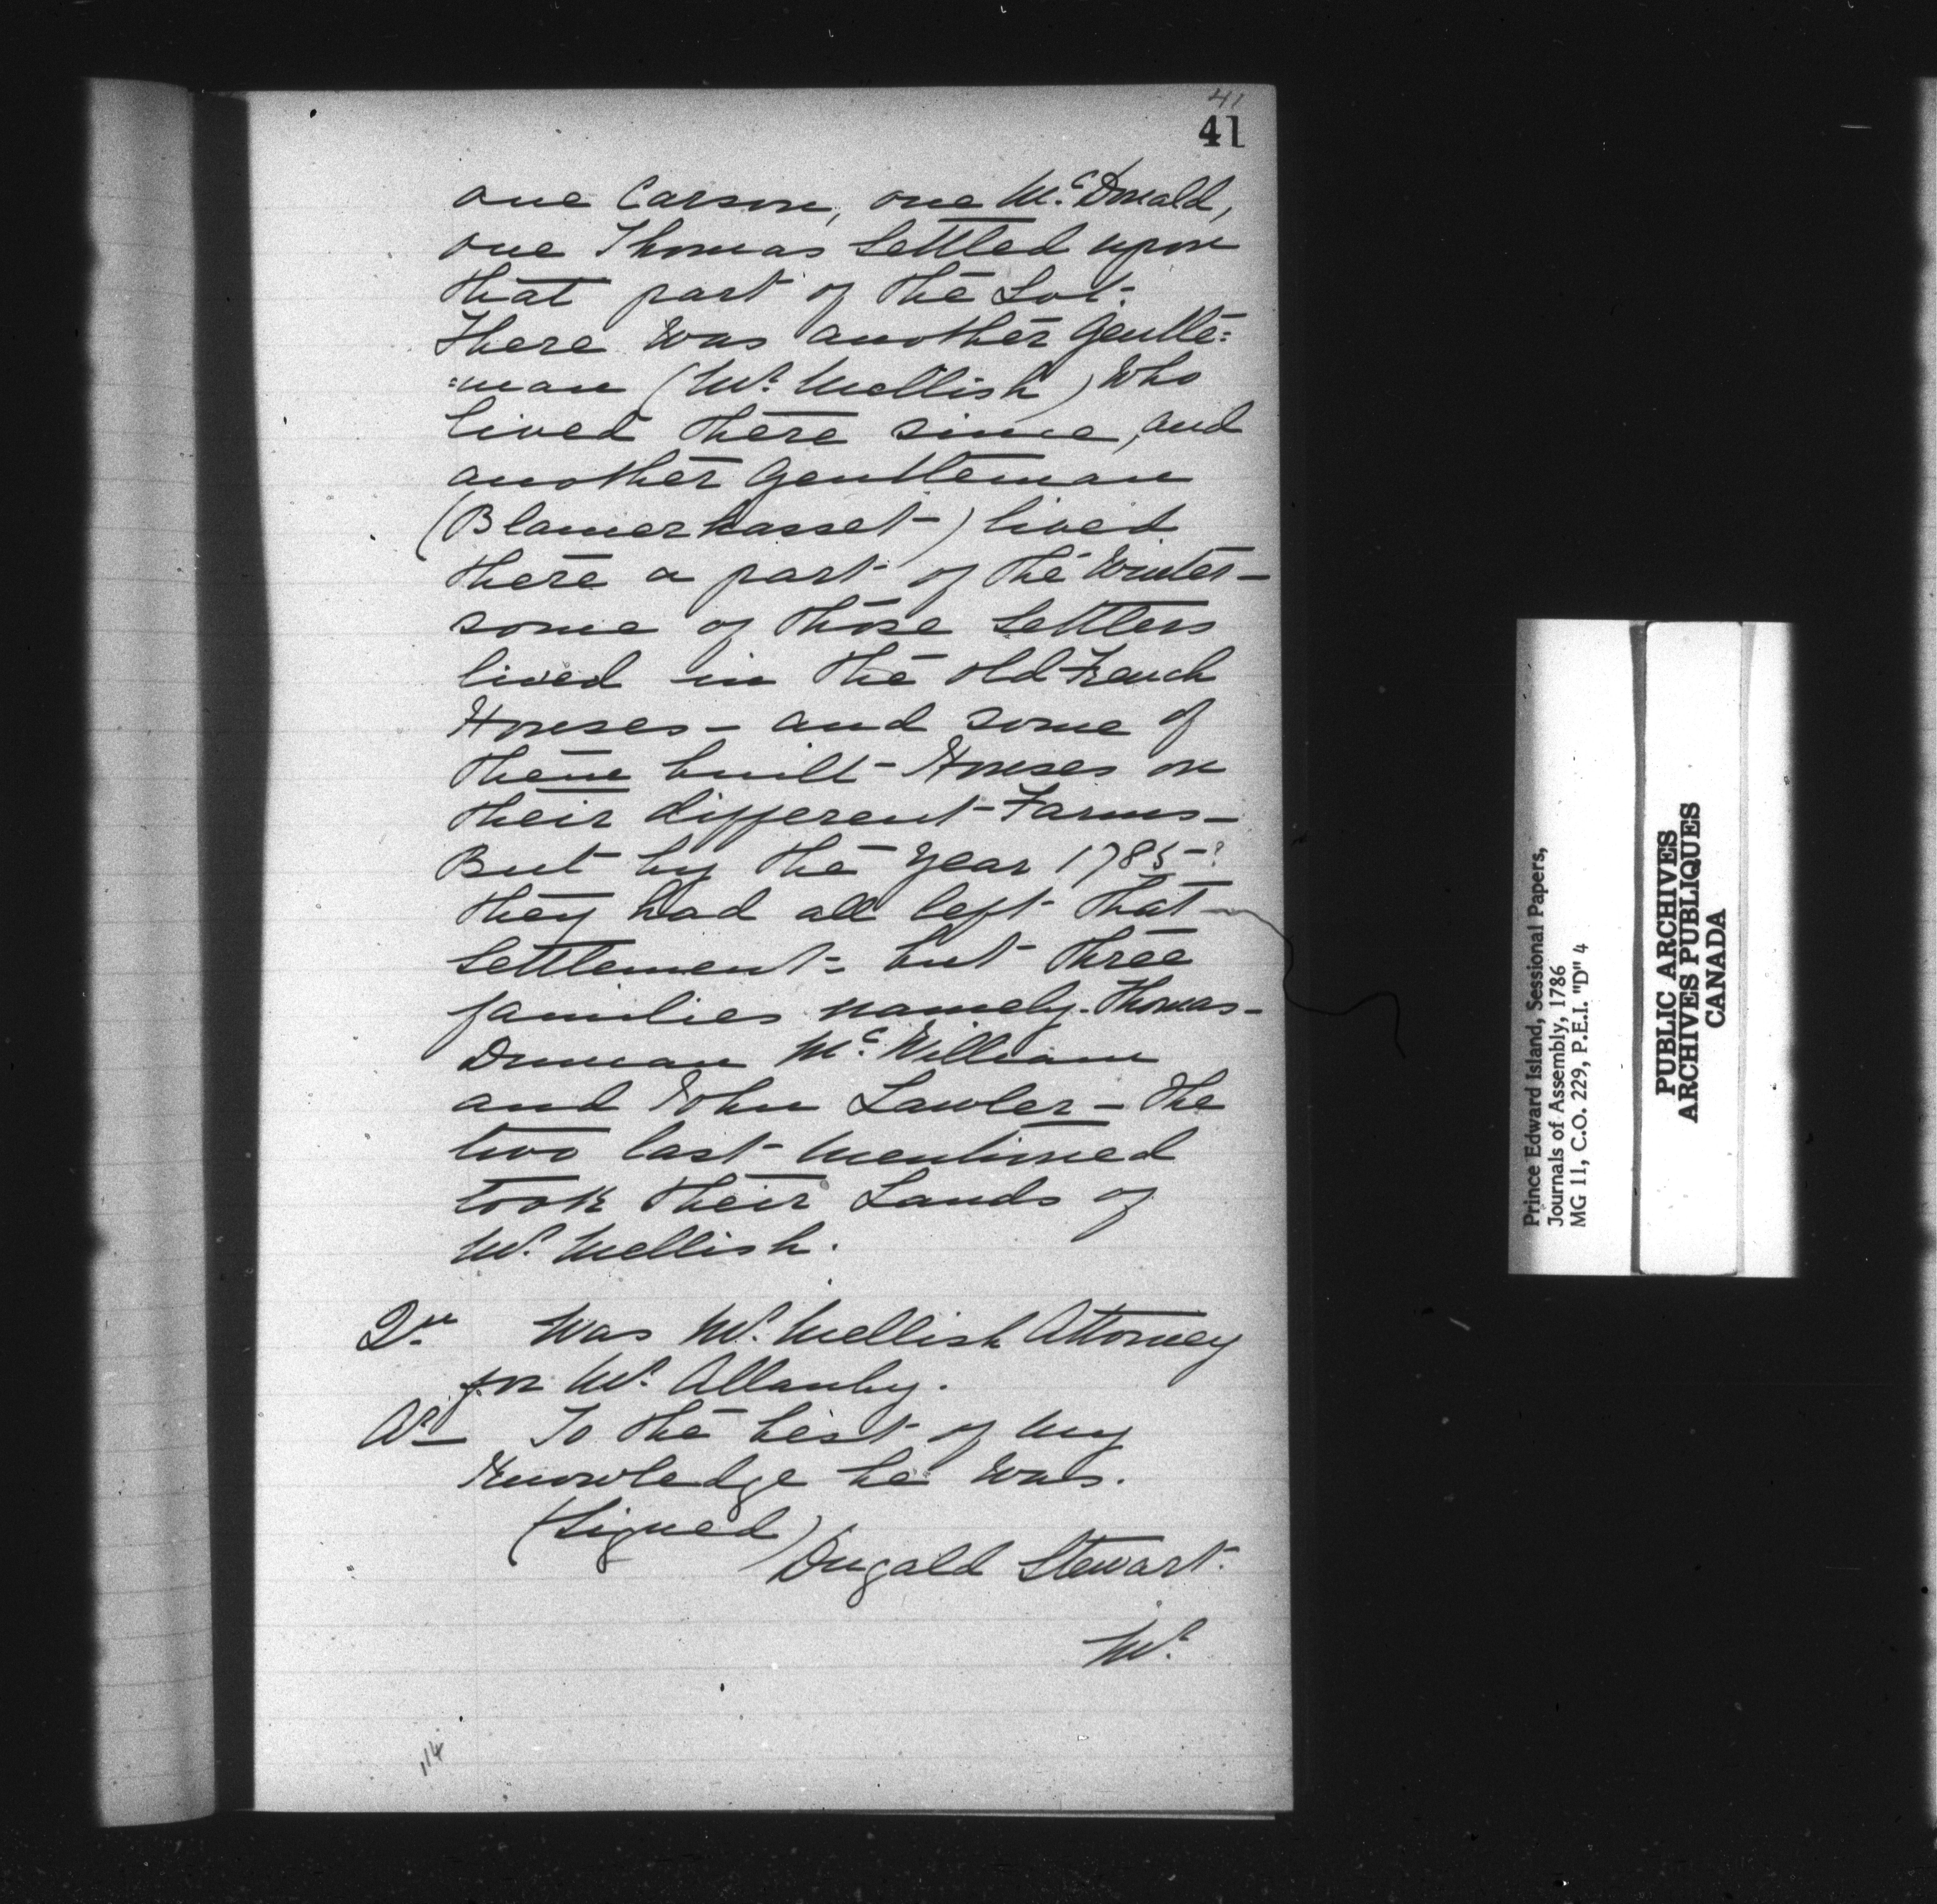 41
41
one Carson, one Mc. Donald,
one Thomas Settled upon
that part of the Lot-
There was another Gentle=
=man (Mr. Mellish) who
lived there since, and
another Gentleman
(Blamerhasset-) lived
there a part of the Winter-
some of those Settlers
lived in the old French
Houses - and some of
them built Houses on
their different Farms -
But by the Year 1785-
they had all left that
Settlement - but three
families namely. Thomas -
Duncan Mc. William
and John Lawler - The
two last mentioned
took their Lands of
Mr. Mellish.
Qu Was Mr. Mellish Attorney
for Mr. Allanby.
Ar To the best of my
Knowledge he was.
(Signed)
Dugald Stewart.
Mr.
114
Prince Edward Island, Sessional Papers,
Journals of Assembly, 1786
MG 11, C.O. 229, P.E.I. "D" 4
PUBLIC ARCHIVES
ARCHIVES PUBLIQUES
CANADA